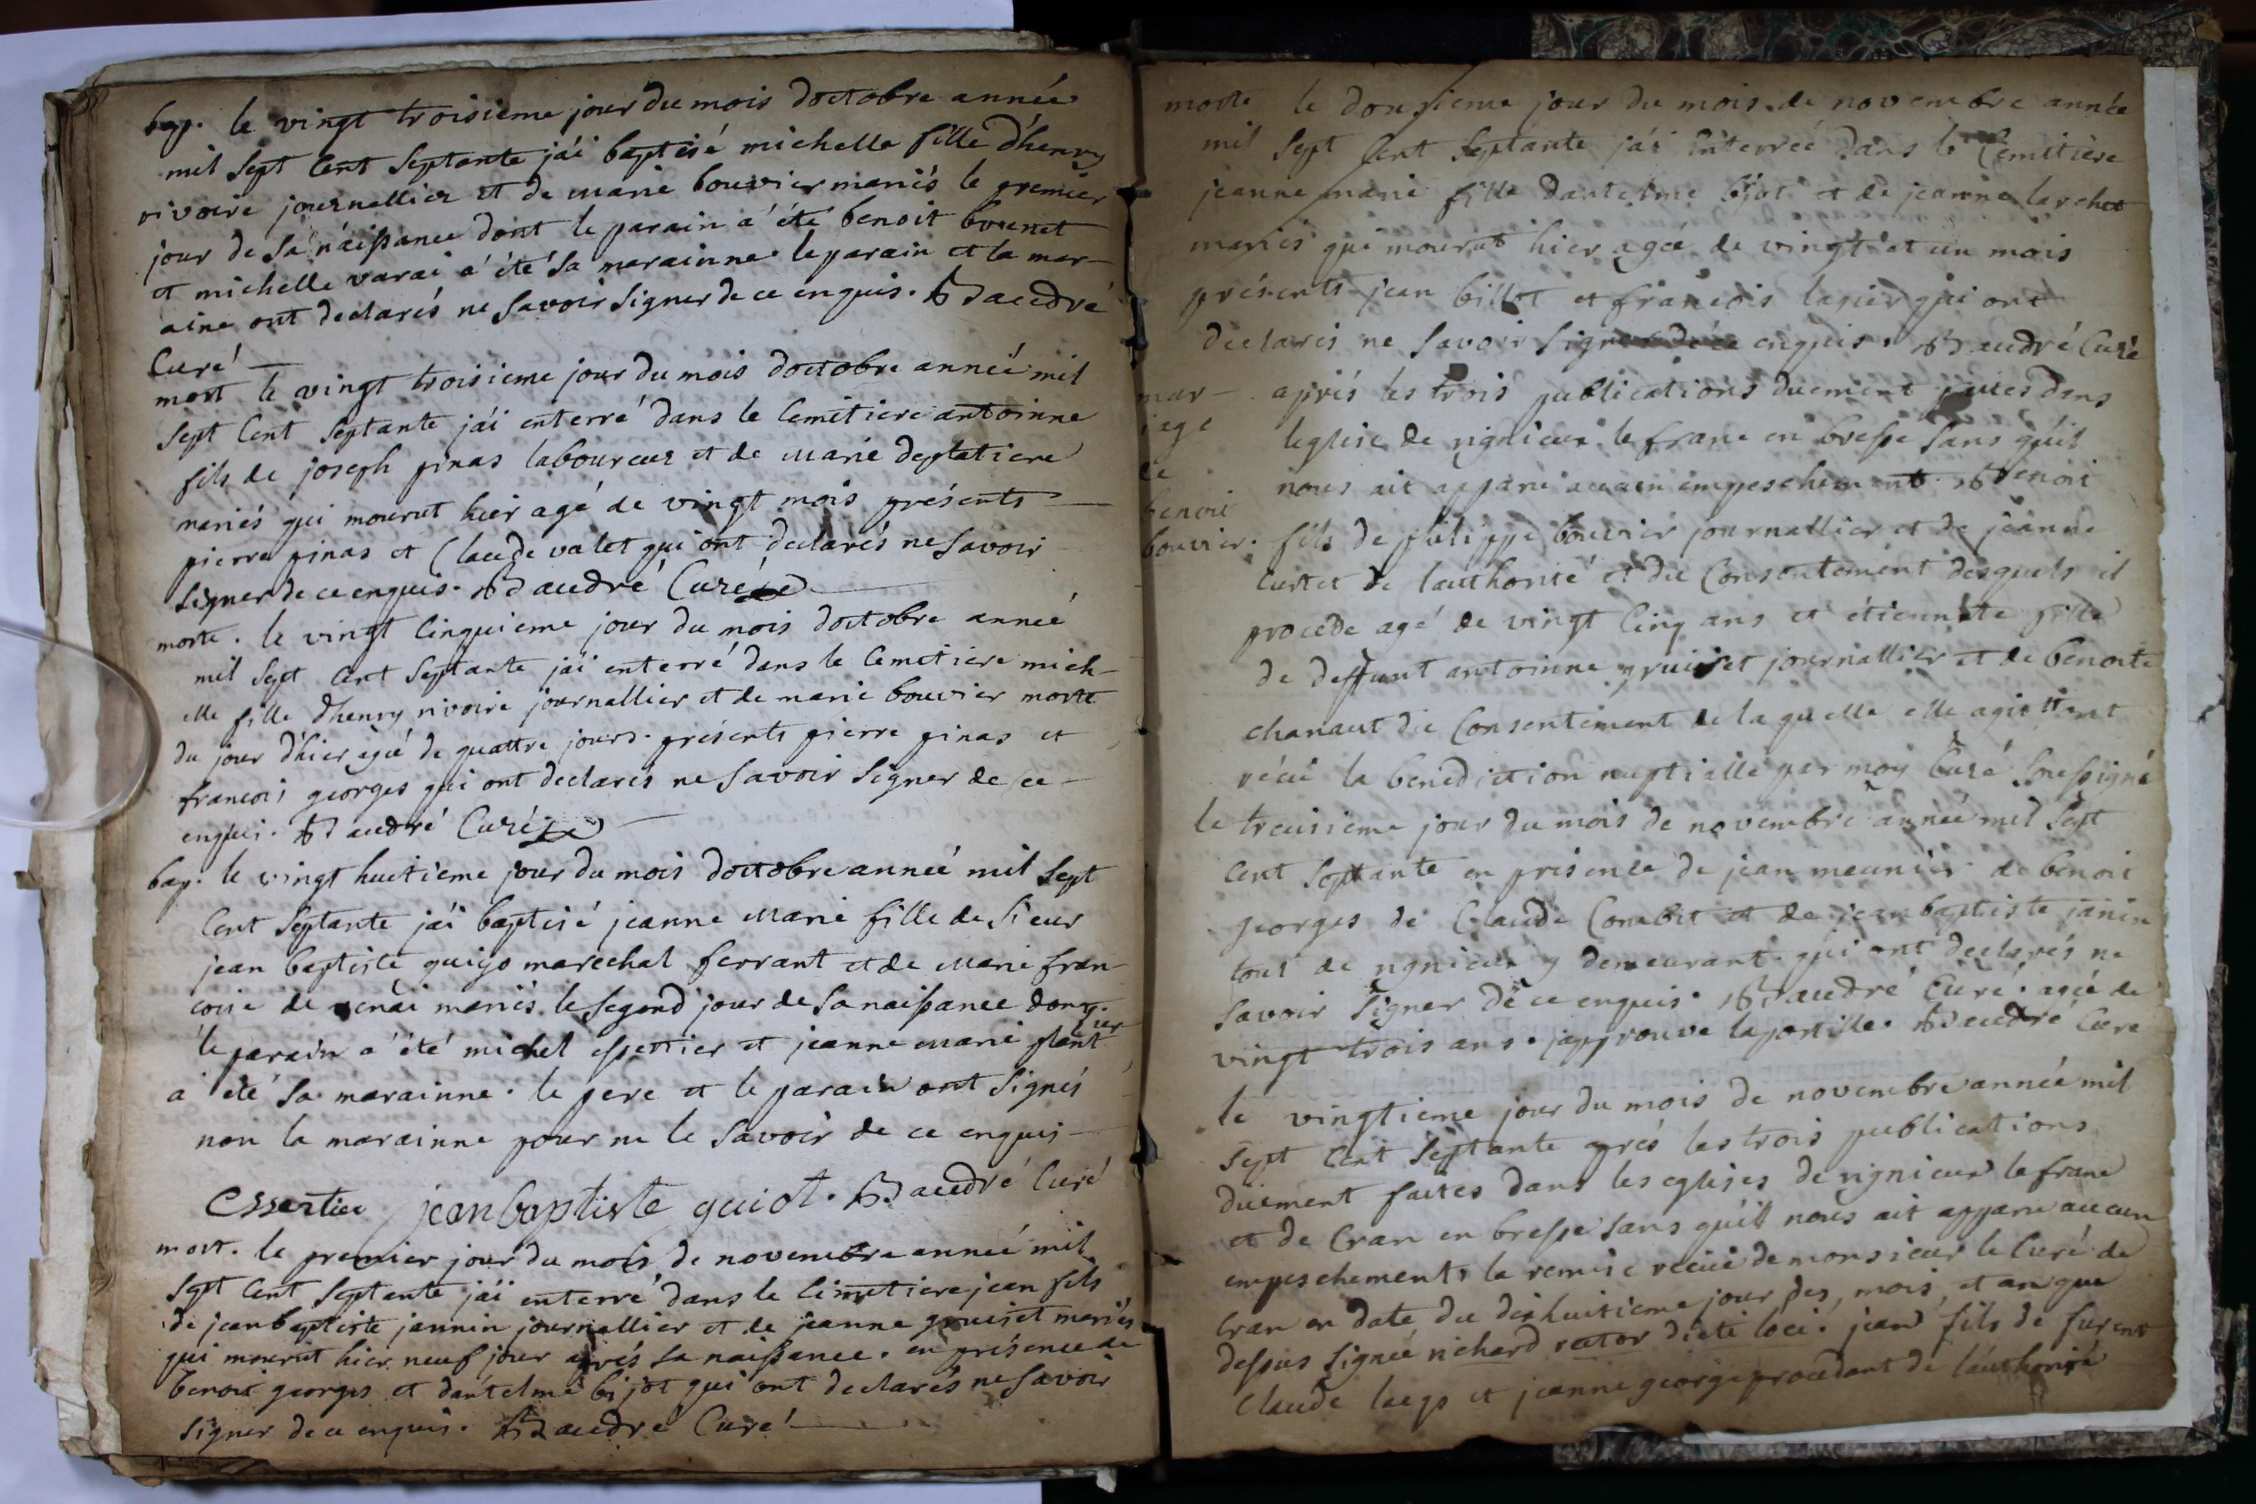 bap. le vingt troisieme jour du mois doctobre année
mil sept Cent septante jái baptisé michelle fille d'henry
rivoire journallier et de marie bouvier mariés le premier
jour de sa náissance dont le parain a été benoit bounet
et michelle varai a été sa marainne. le parain et la mar-
aine ont declarés ne savoir signer de ce enquis. Baudré
Curé
mort le vingt troisieme jour du mois doctobre année mil
sept Cent septante jái enterré dans le Cemitiere antoinne
fils de joseph pinas laboureur et de marie deplatiere
mariés qui mourut hier agé de vingt mois présents
pierre pinas et Claude valet qui ont declarés ne savoir
signer de ce enquis. Baudré Curé
morte. le vingt Cinquieme jour du mois doctobre année
mil sept Cent septante jái enterré dans le Cemitiere mich-
elle fille dhenry rivoire journallier et de marie bouvier morte
du jour d'hier agée de quattre jours. présents pierre pinas et
francois georges qui ont declarés ne savoir signer de ce
enquis. Baudré Curé
bap. le vingt huitieme jour du mois doctobre année mil sept
Cent septante jái baptisé jeanne marie fille de sieur
jean baptiste guijo marechal ferrant et de marie fran-
coise de mariés le segond jour de sa naissance dont
le parain a été michel essertier et jeanne marie plant
ier
a été sa marainne. le pere et le parain ont signés
non la marainne pour ne le savoir de ce enquis
Essertier jean baptiste guiot. Baudré Curé
mort. le premier jour du mois de novembre année mil
sept Cent septante jái enterré dans le Cimetiere jean fils
de jean baptiste jannin journallier et de jeanne gruiset mariés
qui mourut hier neuf jour aprés sa naissance. en présence de
benoit georges et dantelme bijot qui ont declarés ne savoir
signer de ce enquis. Baudré Curé
morte le dousieme jour du mois de novembre année
mil sept Cent septante jái enterreé dans le Cemitiere
jeanne marie fille dantelme bijot et de jeanne larchet
mariés qui mourut hier agée de vingt et un mois
présents jean billot et francois lanier qui ont
declarés ne savoir signer de ce enquis. Baudré Curé
mar- aprés les trois publications duement faites dans
iage leglise de rignieux le franc en bresse sans quil
de nous ait apparu aucun empeschement. Benoit
benoit fils de philippe bouvier journallier et de jeanne
bouvier. Curtet de lauthorité et du Consentement desquels il
procede agé de vingt Cinq ans et étiennete fille
de deffunt antoinne gruiset journallier et de benoite
chanaut du Consentement de la quelle elle agit ont
récu la benediction nuptialle par moy Curé soussigné
le treisieme jour du mois de novembre année mil sept
Cent septante en présence de jean meunier de benoit
georges de Claude Conebit et de jean baptiste janin
tous de rignieux y demeurant qui ont declarés ne
savoir signer de ce enquis. Baudré Curé. agée de
vingt trois ans. japprouve lapostille. Baudré Cure
le vingtieme jour du mois de novembre année mil
sept Cent septante aprés les trois publications
duement faites dans les eglises de rignieux le franc
et de Cran en bresse sans quil nous ait apparu aucun
empeschement, la remise recue de monsieur le Curé de
Cran en date du dixhuitieme jour des, mois, et an que
dessus signée richard rector dicti loci. jean fils de furent
Claude laeps et jeanne george procedant de láuthorité